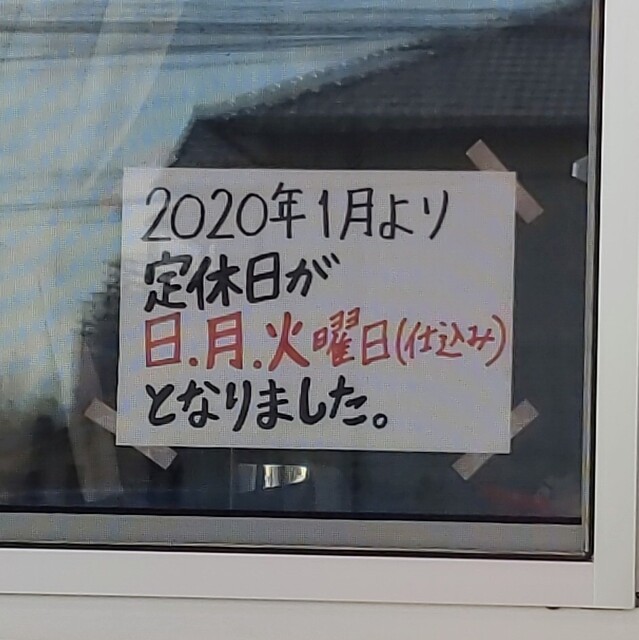 2020年1月より
定休日が
日.月.火曜日(仕込み)
となりました。